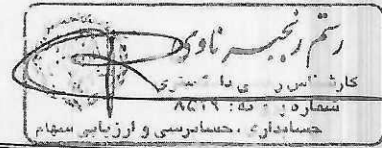 رستم رنجبر ناوی
کارشناس رسمی دادگستری
شماره پروانه: ۸۵۱۹
حسابداری، حسابرسی و ارزیابی سهام